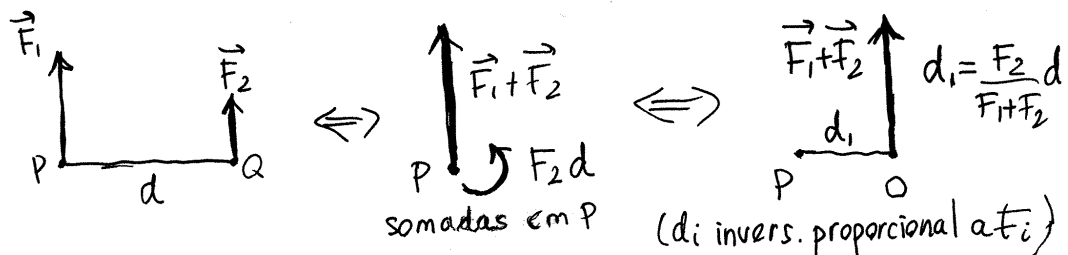 F⃗₁
F⃗₂
P
d
Q
⇔
F⃗₁+F⃗₂
P
F₂d
somadas em P
⇔
F⃗₁+F⃗₂
d₁=F₂/(F₁+F₂) d
d₁
P
O
(di invers. proporcional a Fi)